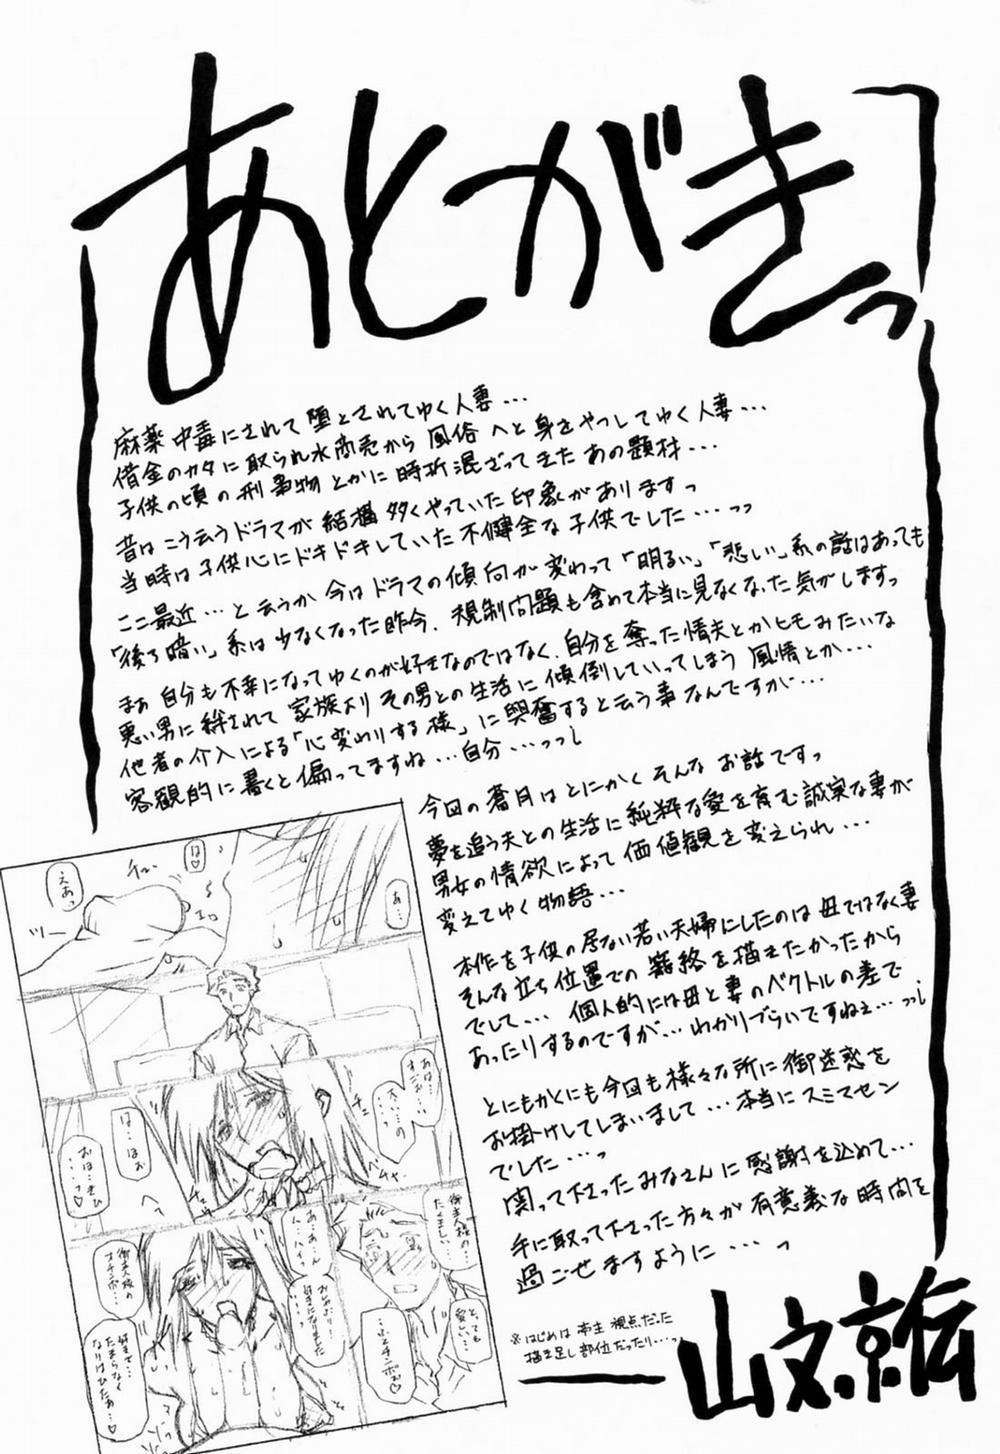 あとがきっ
麻薬中毒にされて堕とされてゆく人妻...
借金のカタに取られ水商売から風俗へと身をやつしてゆく人妻...
子供の頃の刑事物とかに時折混ざってきたあの題材...
昔はこう云うドラマが結構多くやっていた印象がありますっ
当時は子供心にドキドキしていた不健全な子供でした...っっ
ここ最近...と云うか今はドラマの傾向が変わって「明るい」「悲しい」系の話はあっても
「後ろ暗い」系は少なくなった昨今、規制問題も含めて本当に見なくなった気がしますっ
まぁ自分も不幸になってゆくのが好きなのではなく、自分を奪った情夫とかヒモみたいな
悪い男に絆されて家族よりその男との生活に傾倒していってしまう風情とか...
他者の介入による「心変わりする様」に興奮すると云う事なんですが...
客観的に書くと偏ってますね...自分...っっ
今回の蒼月はとにかくそんなお話ですっ
夢を追う夫との生活に純粋な愛を育む誠実な妻が
男女の情欲によって価値観を変えられ...
変えてゆく物語...
本作を子供の居ない若い夫婦にしたのは母ではなく妻
そんな立ち位置での籠絡を描きたかったから
でして...個人的には母と妻のベクトルの差で
あったりするのですが...わかりづらいですねぇ...っっ
とにもかくにも今回も様々な所に御迷惑を
お掛けしてしまいまして...本当にスミマセン
でした...っ
関って下さったみなさんに感謝を込めて...
手に取って下さった方々が有意義な時間を
過ごせますように...っ
※はじめは亭主視点だった
描き足し部位だったり...っ
山文京伝
は♡
チュ
えぁっ
ツー
あ...
あはぁ...
すご...
太い...の
は...はぉ
おは...きひ
...っ♡
御主人様の...
たくましい...
あ...あ...ん
ハ...ハイ...
おしゃぶり...
好きになりました
とっても
愛しい...
御主人様の
オチンポ...
好きで...
たまらなく
なりはひたぁ...♡